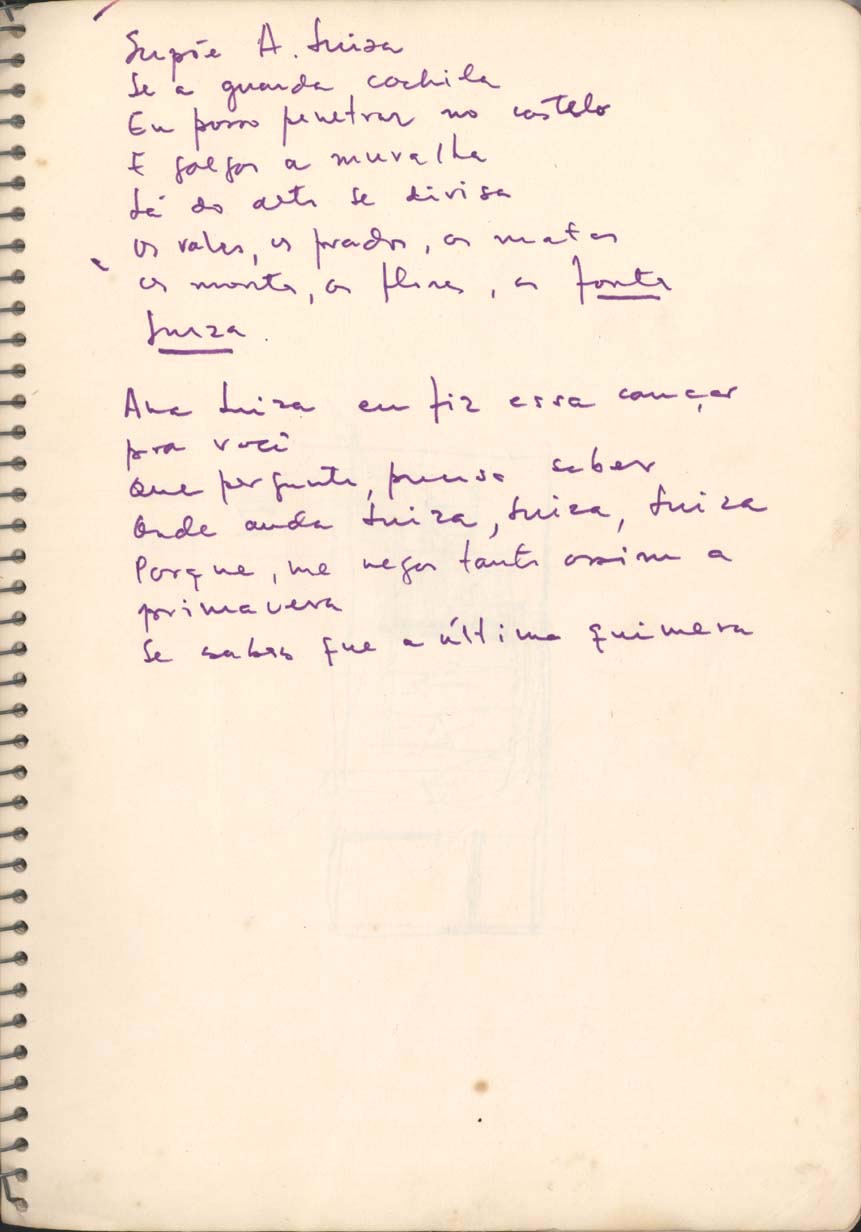 Supõe A. Luiza
Se a guarda cochila
Eu posso penetrar no castelo
E galgar a muralha
Lá do alto se divisa
os vales, os prados, as matas
os montes, as flores, as fontes
Luiza
Ana Luiza eu fiz essa canção
pra você
Que pergunta, precisa saber
Onde anda Luiza, Luiza, Luiza
Porque, me negar tanto assim a
primavera
Se sabes que a última quimera